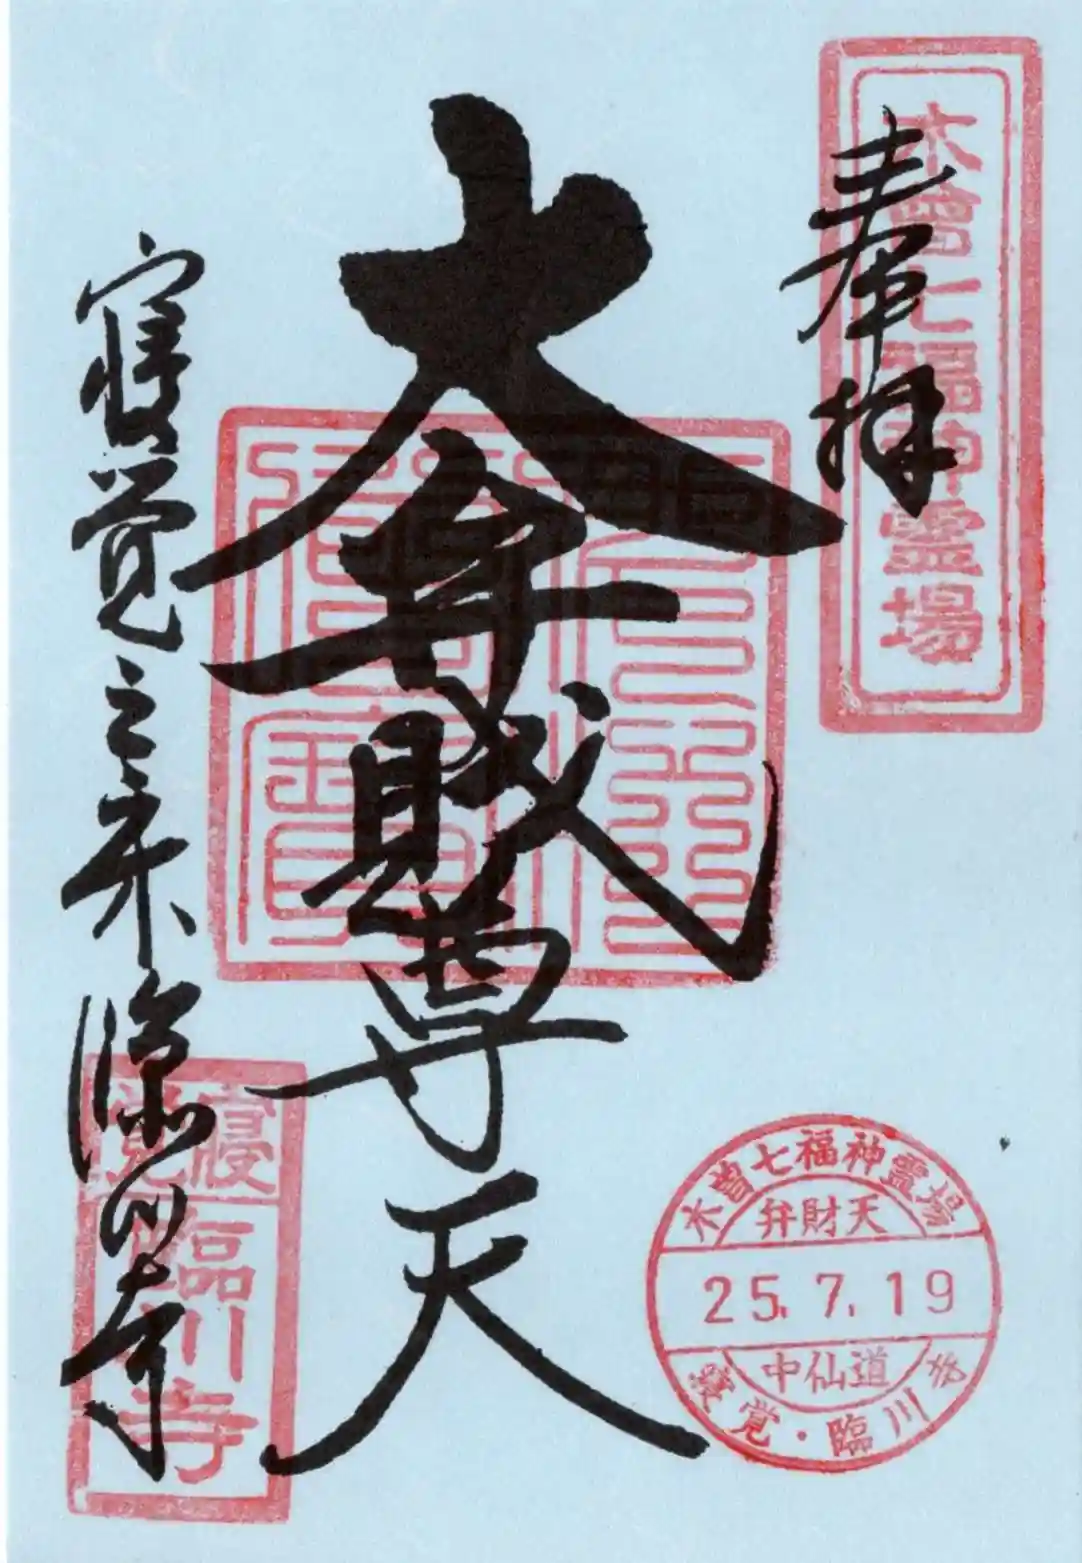 奉拝
木曽七福神霊場
大弁財尊天
寝覚之床 臨川寺
寝覚
臨川寺
木曽七福神霊場
弁財天
25.7.19
中仙道
寝覚・臨川寺